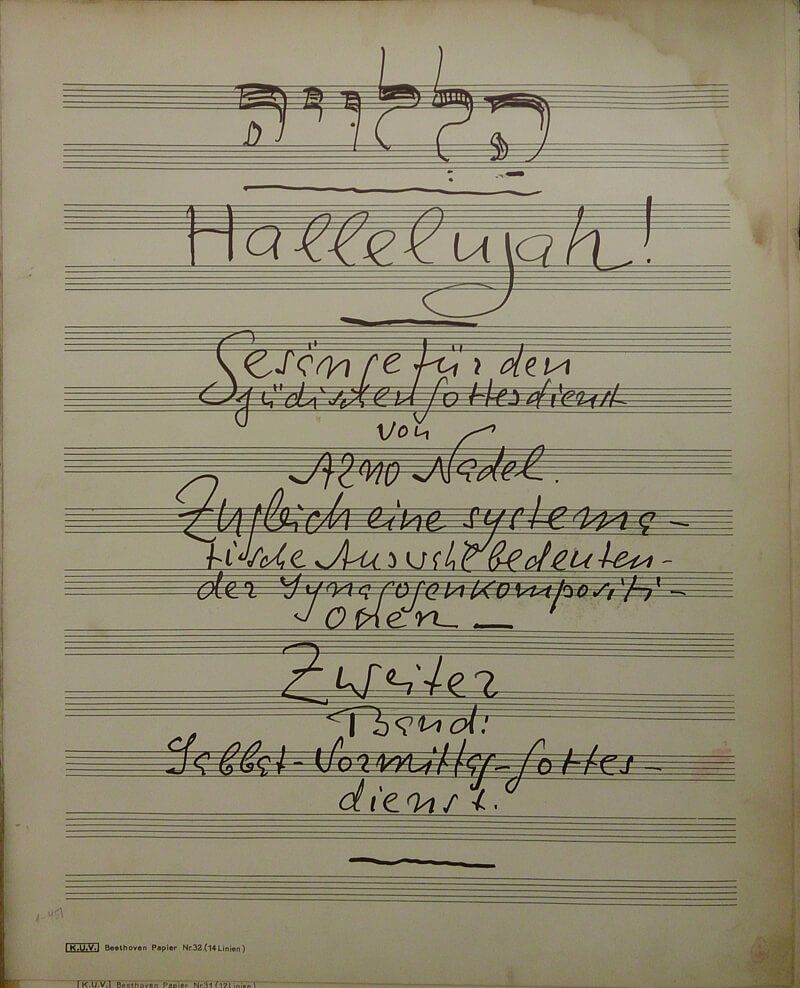 הַלְלוּיָהּ
Hallelujah!
Gesänge für den
jüdischen Gottesdienst
von
Arno Nadel.
Zugleich eine systema-
tische Auswahl bedeuten-
der Synagogenkompositi-
onen —
Zweiter
Band:
Sabbat-Vormittag-Gottes-
dienst.
K.U.V. Beethoven Papier Nr.32.(14 Linien)
K.U.V. Beethoven Papier Nr.31 (12 Linien)